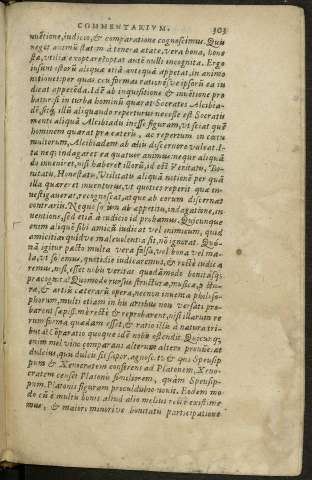 COMMENTARIVM. 303
uentione, iudicio, & comparatione cognoscimus. Quis
neget animū statim à tenera ætate, vera bona, hone
sta, vtilia expetere optat antè nulli incognita. Ergo
insunt istorū aliquæ etiā antequā appetat, in animo
notiones: per quas cum formas rationésve ipsorū ea iu
dicat appetēda. Idē ab inquisitione & inuētione pro
batur. si in turba hominū quærat Socrates Alcibia-
dē, sitq; illū aliquando reperturus necesse est Socratis
menti aliquā Alcibiadis inesse figuram, vt sciat quē
hominem quærat præ cæteris, ac repertum in cœtu
multorum, Alcibiadem ab aliis discernere valeat. I-
ta neq; indagaret ea quatuor animus: neque aliquā
do inueniret, nisi haberet illorū, id est Veritatis, Bo-
nitatis, Honestatis, Vtilitatis aliquā notionē per quā
illa quæreret inuenturus, vt quoties reperit quæ in-
uestigauerat, recognoscat, atque ab eorum discernat
contrariis. Neque solùm ab appetitu, indagatione, in
uentione, sed etiā à iudicio id probamus. Quicunque
enim aliquē sibi amicū iudicat vel inimicum, quid
amicitia quidve maleuolentia sit, nō ignorat. Quo-
nā igitur pacto multa vera falsa, vel bona vel ma-
la, vt solemus, quotidie iudicaremus, & rectè iudica
remus, nisi esset nobis veritas quodāmodo bonitasq;
præcognita? Quomodo rursus structuræ, musicæ, pictu
ræ, & artiū cæterarū opera, necnon inuenta philoso-
phorum, multi etiam in his artibus non versati pro-
barent sæpissimè rectè & reprobarent, nisi illarum re
rum forma quædam esset, & ratio illis à natura tri-
buta? Comparatio quoque idē nobis ostendit. Quicunq;
enim mel vino comparans alterum altero pronūciat
dulcius, quis dulcis sit sapor, agnoscit. & qui Speusip
pum & Xenocratem conferens ad Platonem, Xeno-
cratem censet Platonis similiorem, quàm Speusip-
pum, Platonis figuram proculdubio nouit. Eodem mo-
do cū è multis bonis aliud alio melius rectè existime
mus, & maiori minorive bonitatis participatione